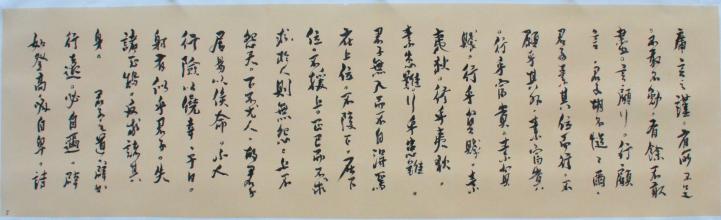 庸言之謹。有所不足
不敢不勉。有餘不敢
盡。言顧行。行顧
言。君子胡不慥慥爾。
君子素其位而行。不
願乎其外。素富貴
。行乎富貴。素貧
賤。行乎貧賤。素
夷狄。行乎夷狄。
素患難。行乎患難。
君子無入而不自得焉
在上位。不陵下。在下
位。不援上。正己而不求
於人則無怨。上不
怨天。下不尤人。故君子
居易以俟命。小人
行險以徼幸。子曰。
射有似乎君子。失
諸正鵠。反求諸其
身。 君子之道。辟如
行遠。必自邇。辟
如登高。必自卑。詩